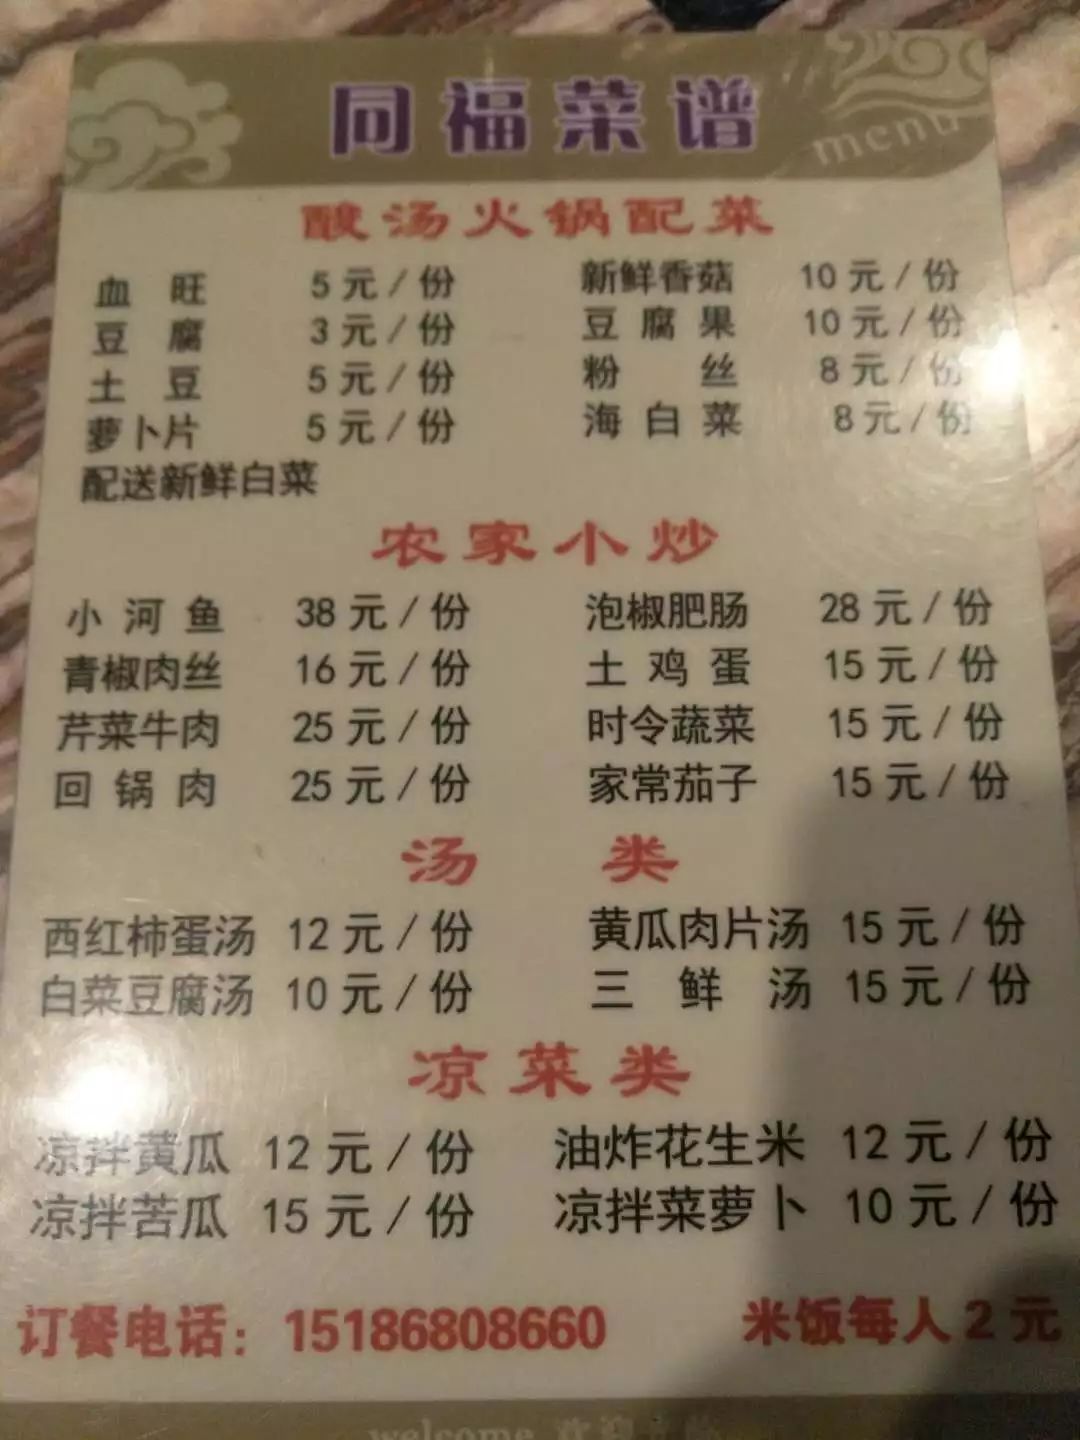 同福菜谱
menu
酸汤火锅配菜
血旺 5元/份 新鲜香菇 10元/份
豆腐 3元/份 豆腐果 10元/份
土豆 5元/份 粉丝 8元/份
萝卜片 5元/份 海白菜 8元/份
配送新鲜白菜
农家小炒
小河鱼 38元/份 泡椒肥肠 28元/份
青椒肉丝 16元/份 土鸡蛋 15元/份
芹菜牛肉 25元/份 时令蔬菜 15元/份
回锅肉 25元/份 家常茄子 15元/份
汤类
西红柿蛋汤 12元/份 黄瓜肉片汤 15元/份
白菜豆腐汤 10元/份 三鲜汤 15元/份
凉菜类
凉拌黄瓜 12元/份 油炸花生米 12元/份
凉拌苦瓜 15元/份 凉拌菜萝卜 10元/份
订餐电话：15186808660 米饭每人2元
welcome 欢迎